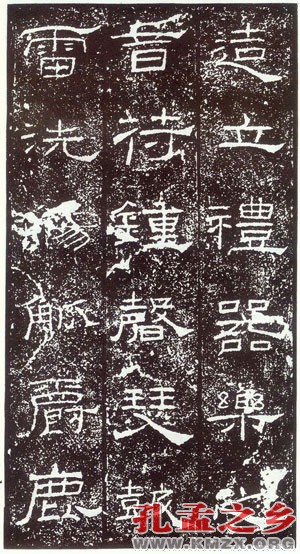 造立禮器樂之
音符鍾磬瑟鼓
雷洗觴觚爵鹿
孔孟之乡
WWW.KMZX.ORG